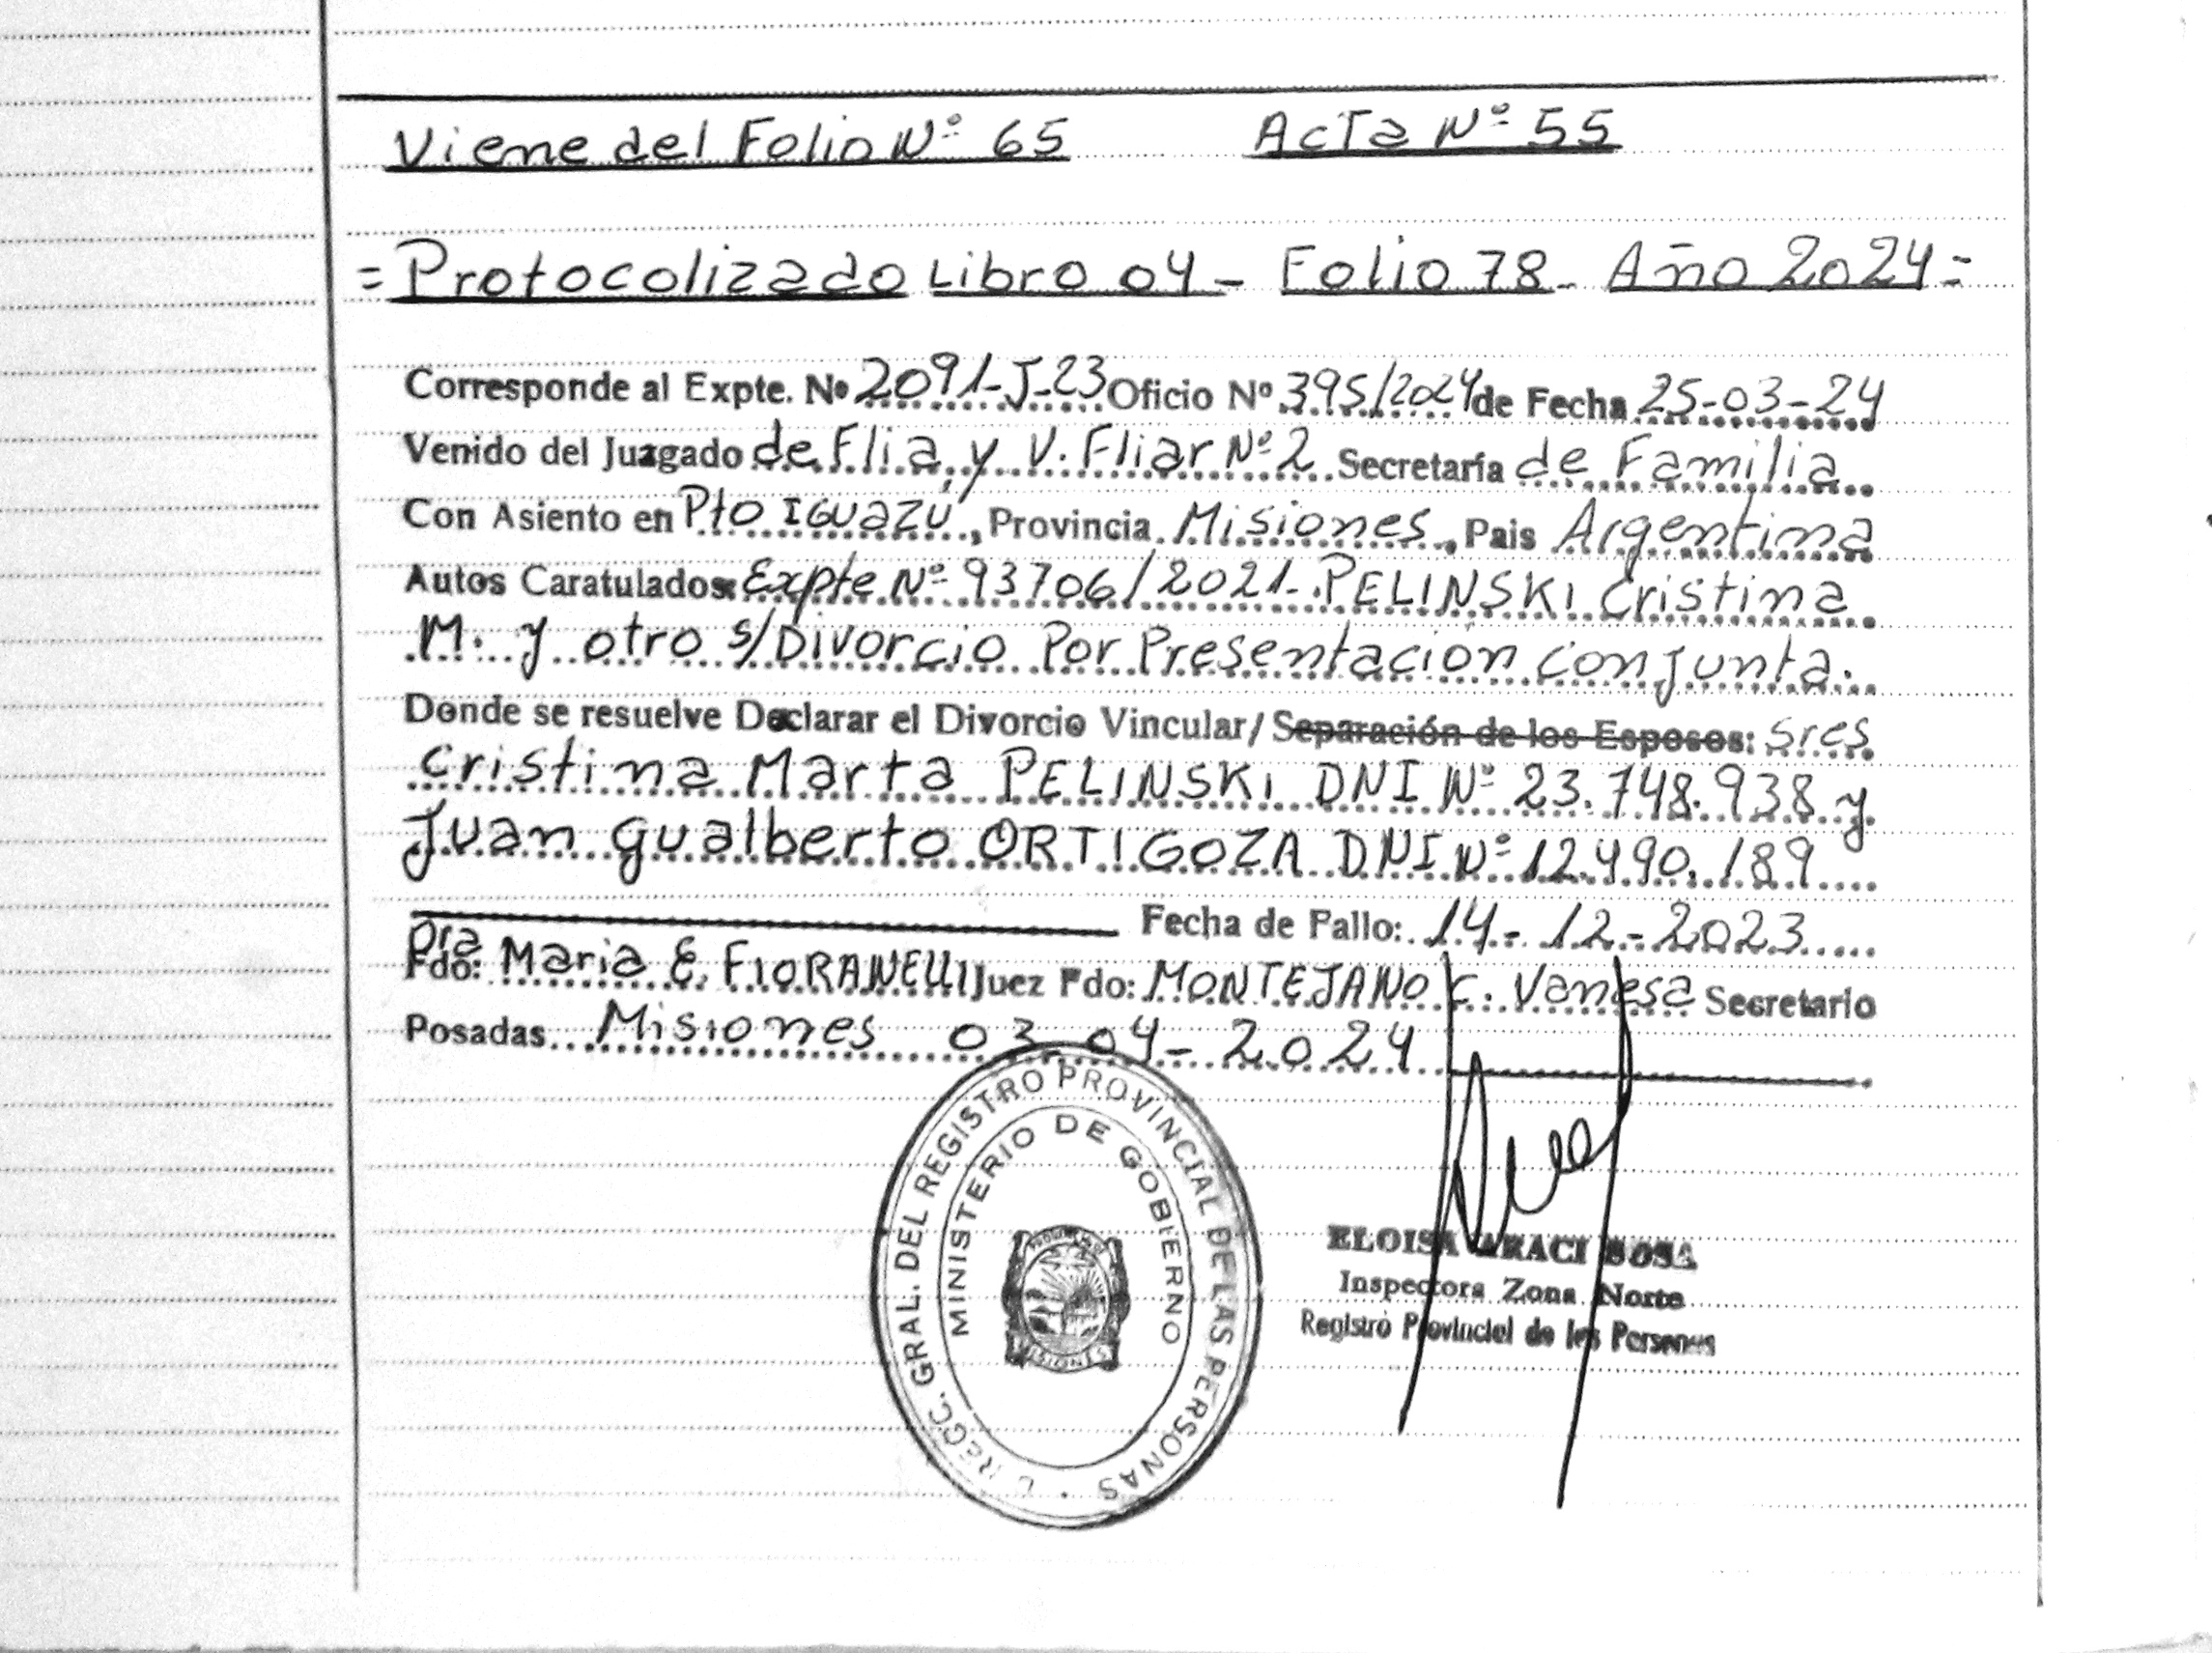 Viene del Folio Nº 65 Acta Nº 55
= Protocolizado Libro 04 - Folio 78 - Año 2024 =
Corresponde al Expte. Nº 2091-J-23 Oficio Nº 395/2024 de Fecha 25-03-24
Venido del Juzgado de Flia, y V. Fliar Nº 2 Secretaría de Familia
Con Asiento en Pto IGUAZÚ, Provincia Misiones, Pais Argentina
Autos Caratulados: Expte Nº 93706/2021- PELINSKI Cristina
M. y otro s/Divorcio Por Presentación Conjunta.
Donde se resuelve Declarar el Divorcio Vincular/Separación de los Esposos: Sres
Cristina Marta PELINSKI DNI Nº 23.748.938 y
Juan Gualberto ORTIGOZA DNI Nº 12.490.189
Fecha de Fallo: 14-12-2023
Dra
Fdo: Maria E. FIORANELLI Juez Fdo: MONTEJANO C. Vanesa Secretario
Posadas Misiones 03-04-2024
DIRECC. GRAL. DEL REGISTRO PROVINCIAL DE LAS PERSONAS
MINISTERIO DE GOBIERNO
MISIONES
ELOISA ARACI SOSA
Inspectora Zona Norte
Registro Provincial de las Personas